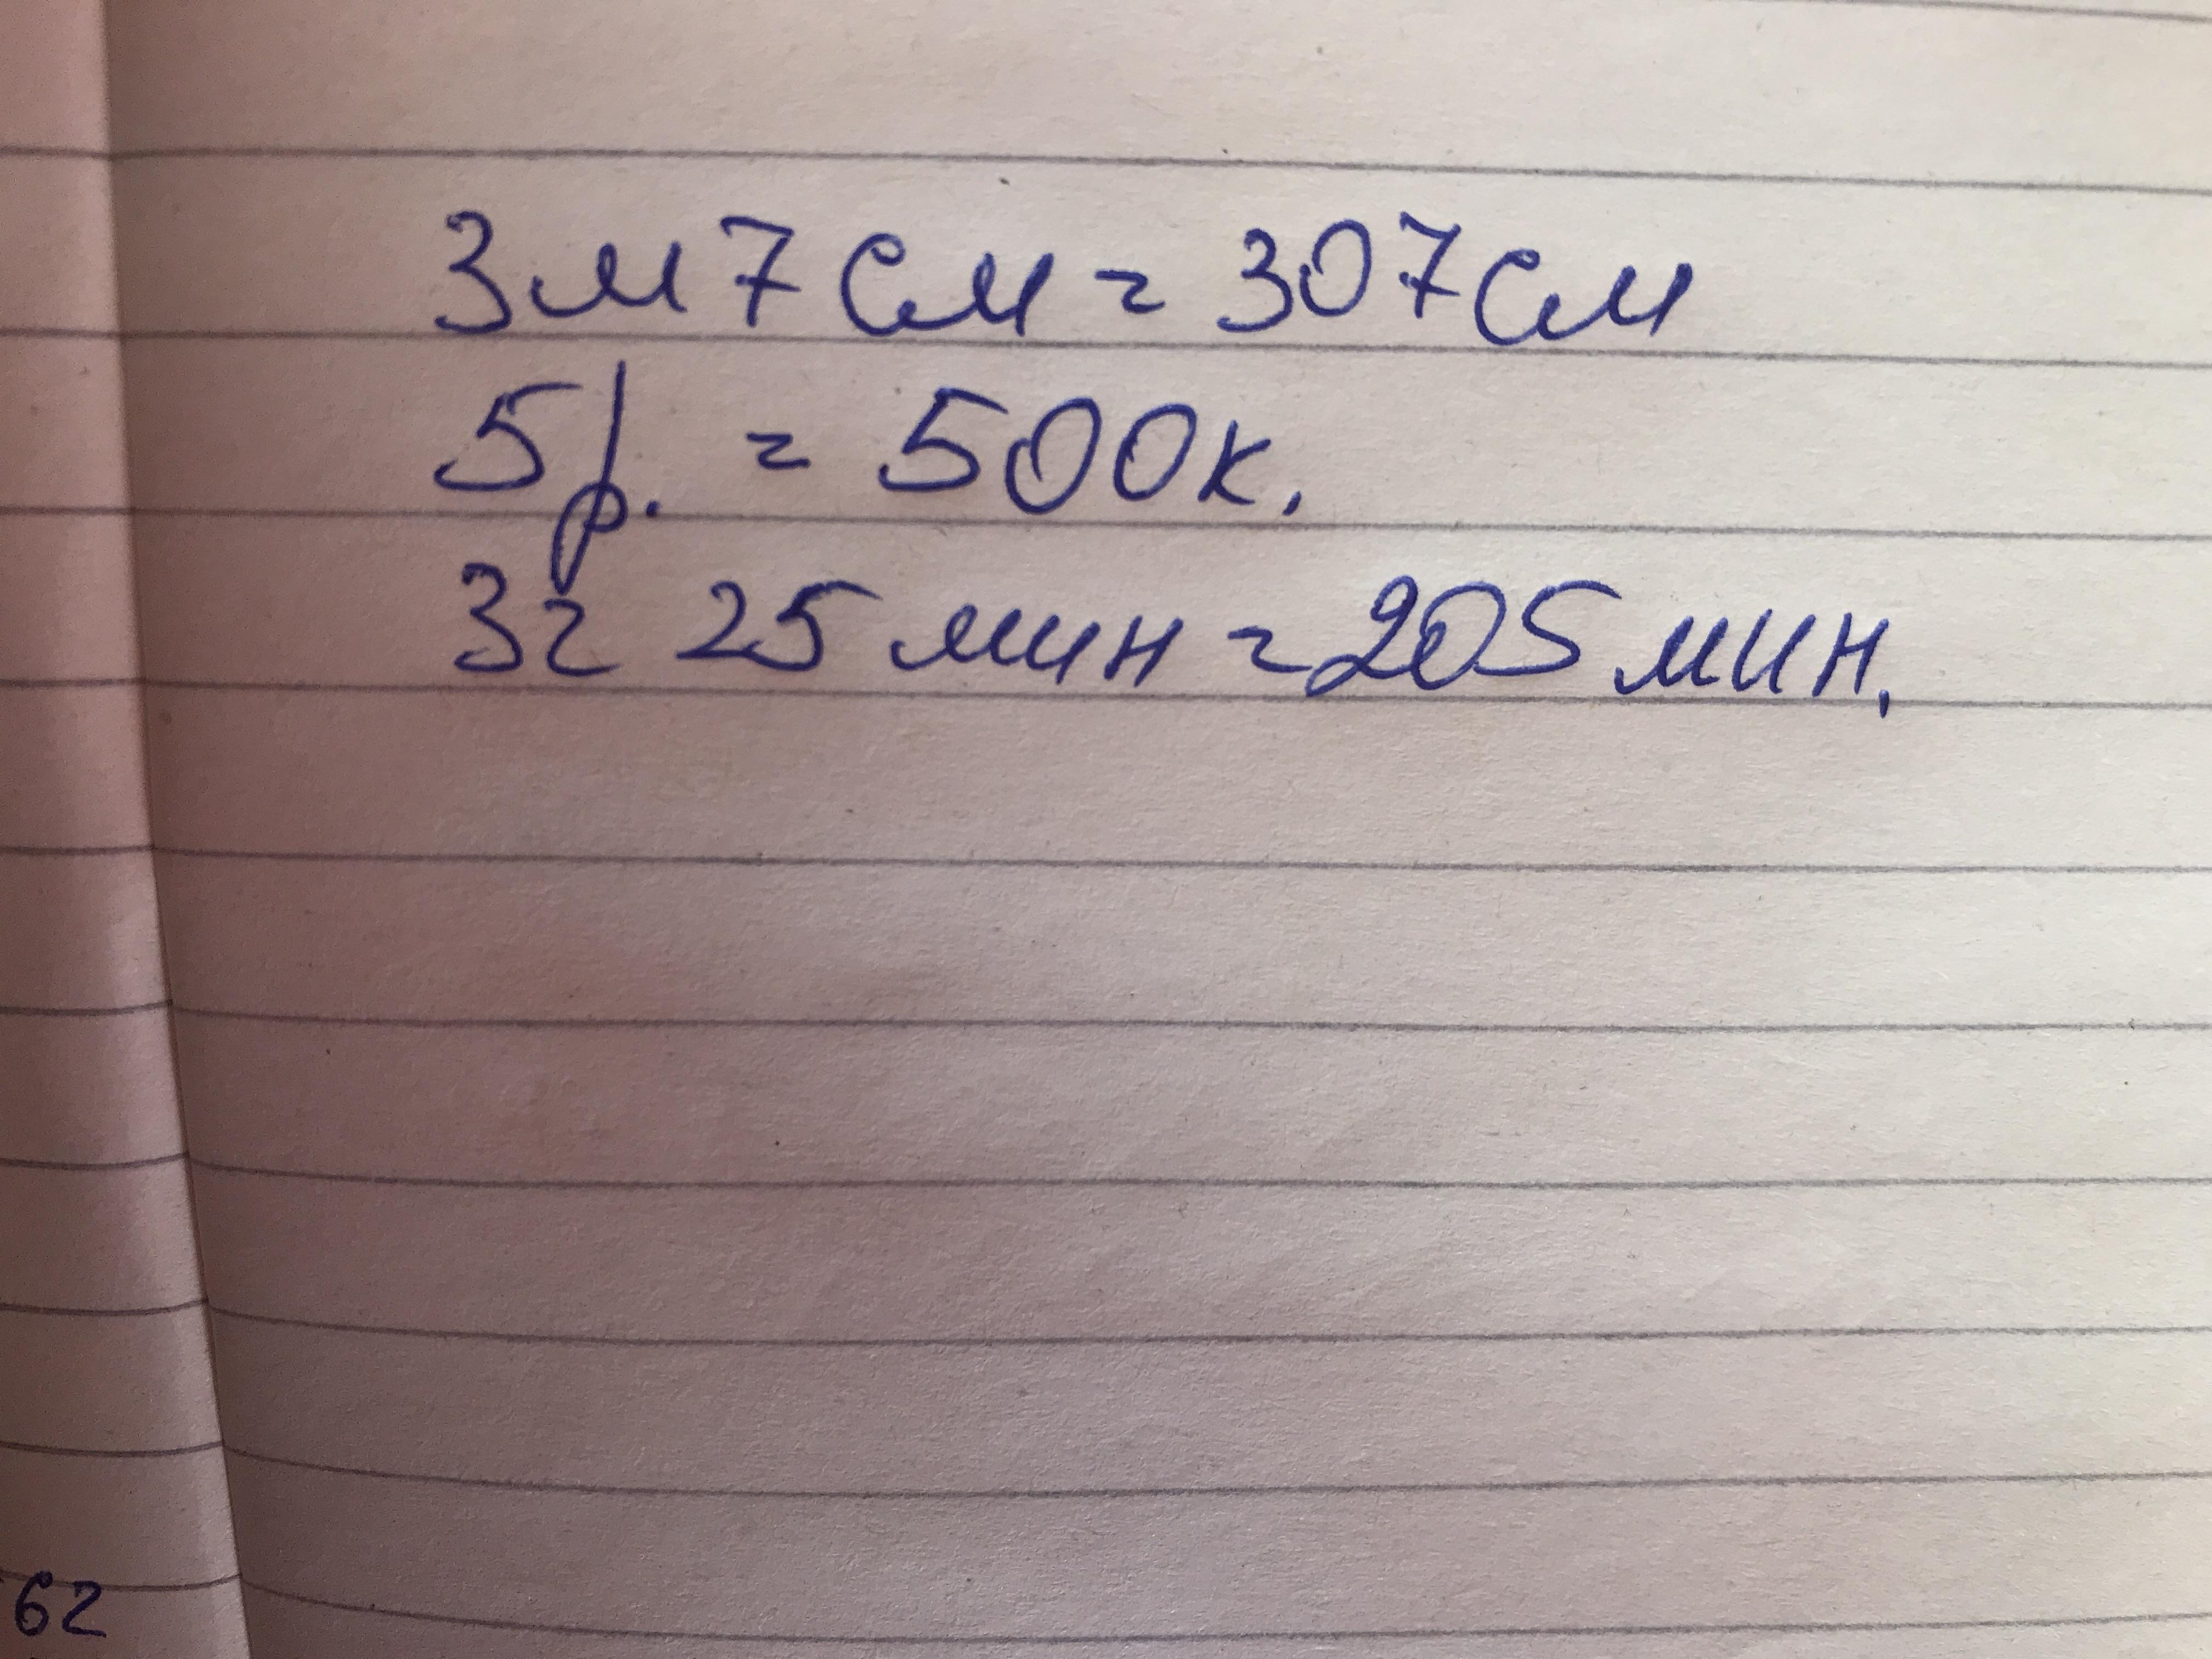 3м 7 см = 307 см
5 р. = 500 к.
3ч 25 мин = 205 мин.
62